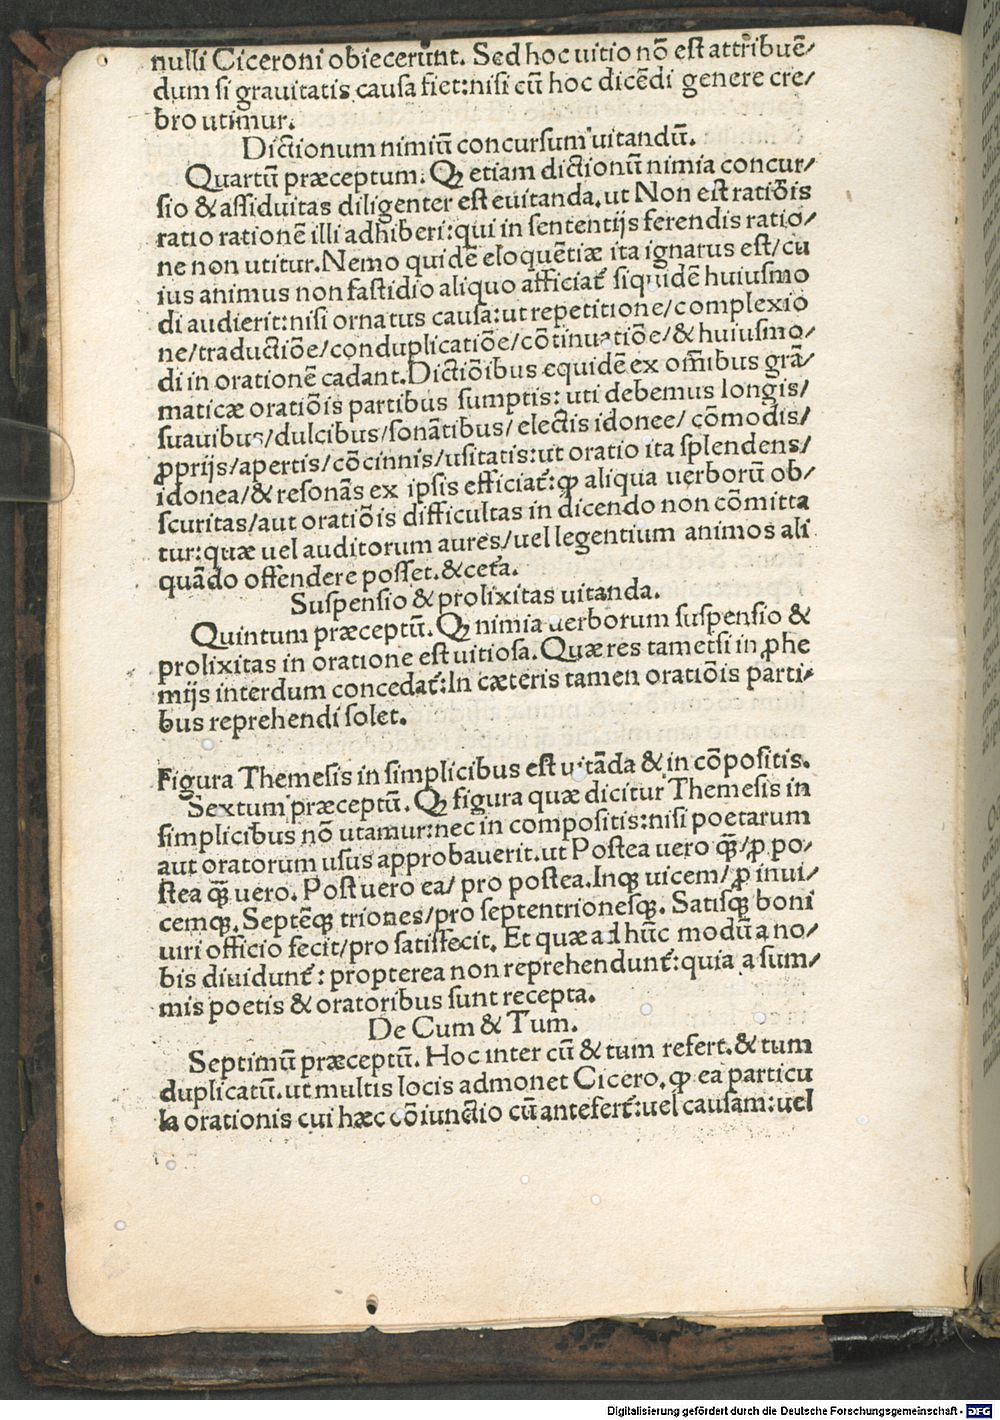 nulli Ciceroni obiecerūnt. Sed hoc uitio nō est attribuē/
dum si grauitatis causa fiet: nisi cū hoc dicēdi genere cre/
bro utimur.
Dictionum nimiū concursum uitandū.
Quartū præceptum. Qꝫ etiam dictionū nimia concur/
sio & assiduitas diligenter est euitanda. ut Non est ratiōis
ratio rationē illi adhiberi: qui in sententijs ferendis ratio/
ne non utitur. Nemo quidē eloquētiæ ita ignarus est/cu
ius animus non fastidio aliquo afficiat᷑ siquidē huiusmo
di audierit: nisi ornatus causa: ut repetitione/complexio
ne/traductiōe/conduplicatiōe/cōtinuatiōe/& huiusmo/
di in orationē cadant. Dictiōibus equidē ex om̄ibus grā/
maticæ oratiōis partibus sumptis: uti debemus longis/
suauibus/dulcibus/sonātibus/electis idonee/cōmodis/
ꝓprijs/apertis/cōcinnis/usitatis: ut oratio ita splendens/
idonea/& resonās ex ipsis efficiat᷑: ꝙ aliqua uerborū ob/
scuritas/aut oratiōis difficultas in dicendo non cōmitta
tur: quæ uel auditorum aures/uel legentium animos ali
quādo offendere posset. & cet᷑a.
Suspensio & prolixitas uitanda.
Quintum præceptū. Qꝫ nimia uerborum suspensio &
prolixitas in oratione est uitiosa. Quæ res tametsi in ꝓhe
mijs interdum concedat᷑: In cæteris tamen oratiōis parti/
bus reprehendi solet.
Figura Themesis in simplicibus est uitāda & in cōpositis.
Sextum præceptū. Qꝫ figura quæ dicitur Themesis in
simplicibus nō utamur: nec in compositis: nisi poetarum
aut oratorum usus approbauerit. ut Postea uero qꝫ̄/ꝓ po/
stea qꝫ̄ uero. Post uero ea/pro postea. Inqꝫ uicem/ꝓ inui/
cemqꝫ. Septēqꝫ triones/pro septentrionesqꝫ. Satisqꝫ boni
uiri officio fecit/pro satisfecit. Et quæ ad hūc modū a no/
bis diuidunt᷑: propterea non reprehendunt᷑: quia a sum/
mis poetis & oratoribus sunt recepta.
De Cum & Tum.
Septimū præceptū. Hoc inter cū & tum refert. & tum
duplicatū. ut multis locis admonet Cicero. ꝙ ea particu
la orationis cui hæc cōiunctio cū antefert᷑: uel causam: uel
Digitalisierung gefördert durch die Deutsche Forschungsgemeinschaft - DFG